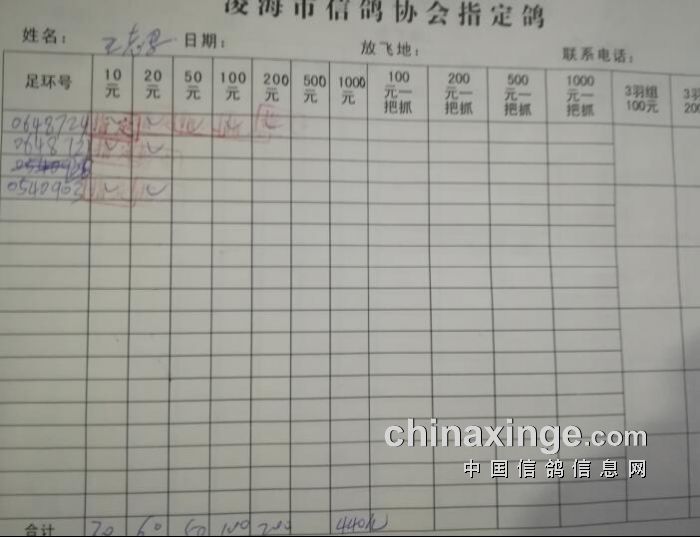 凌海市信鸽协会指定鸽
姓名： 日期： 放飞地： 联系电话：
足环号 10元 20元 50元 100元 200元 500元 1000元 100元一把抓 200元一把抓 500元一把抓 1000元一把抓 3羽组100元 3羽 200
0648724
0648721
0540903
合计 60 50 100 200 440元
chinaxinge.com
中国信鸽信息网